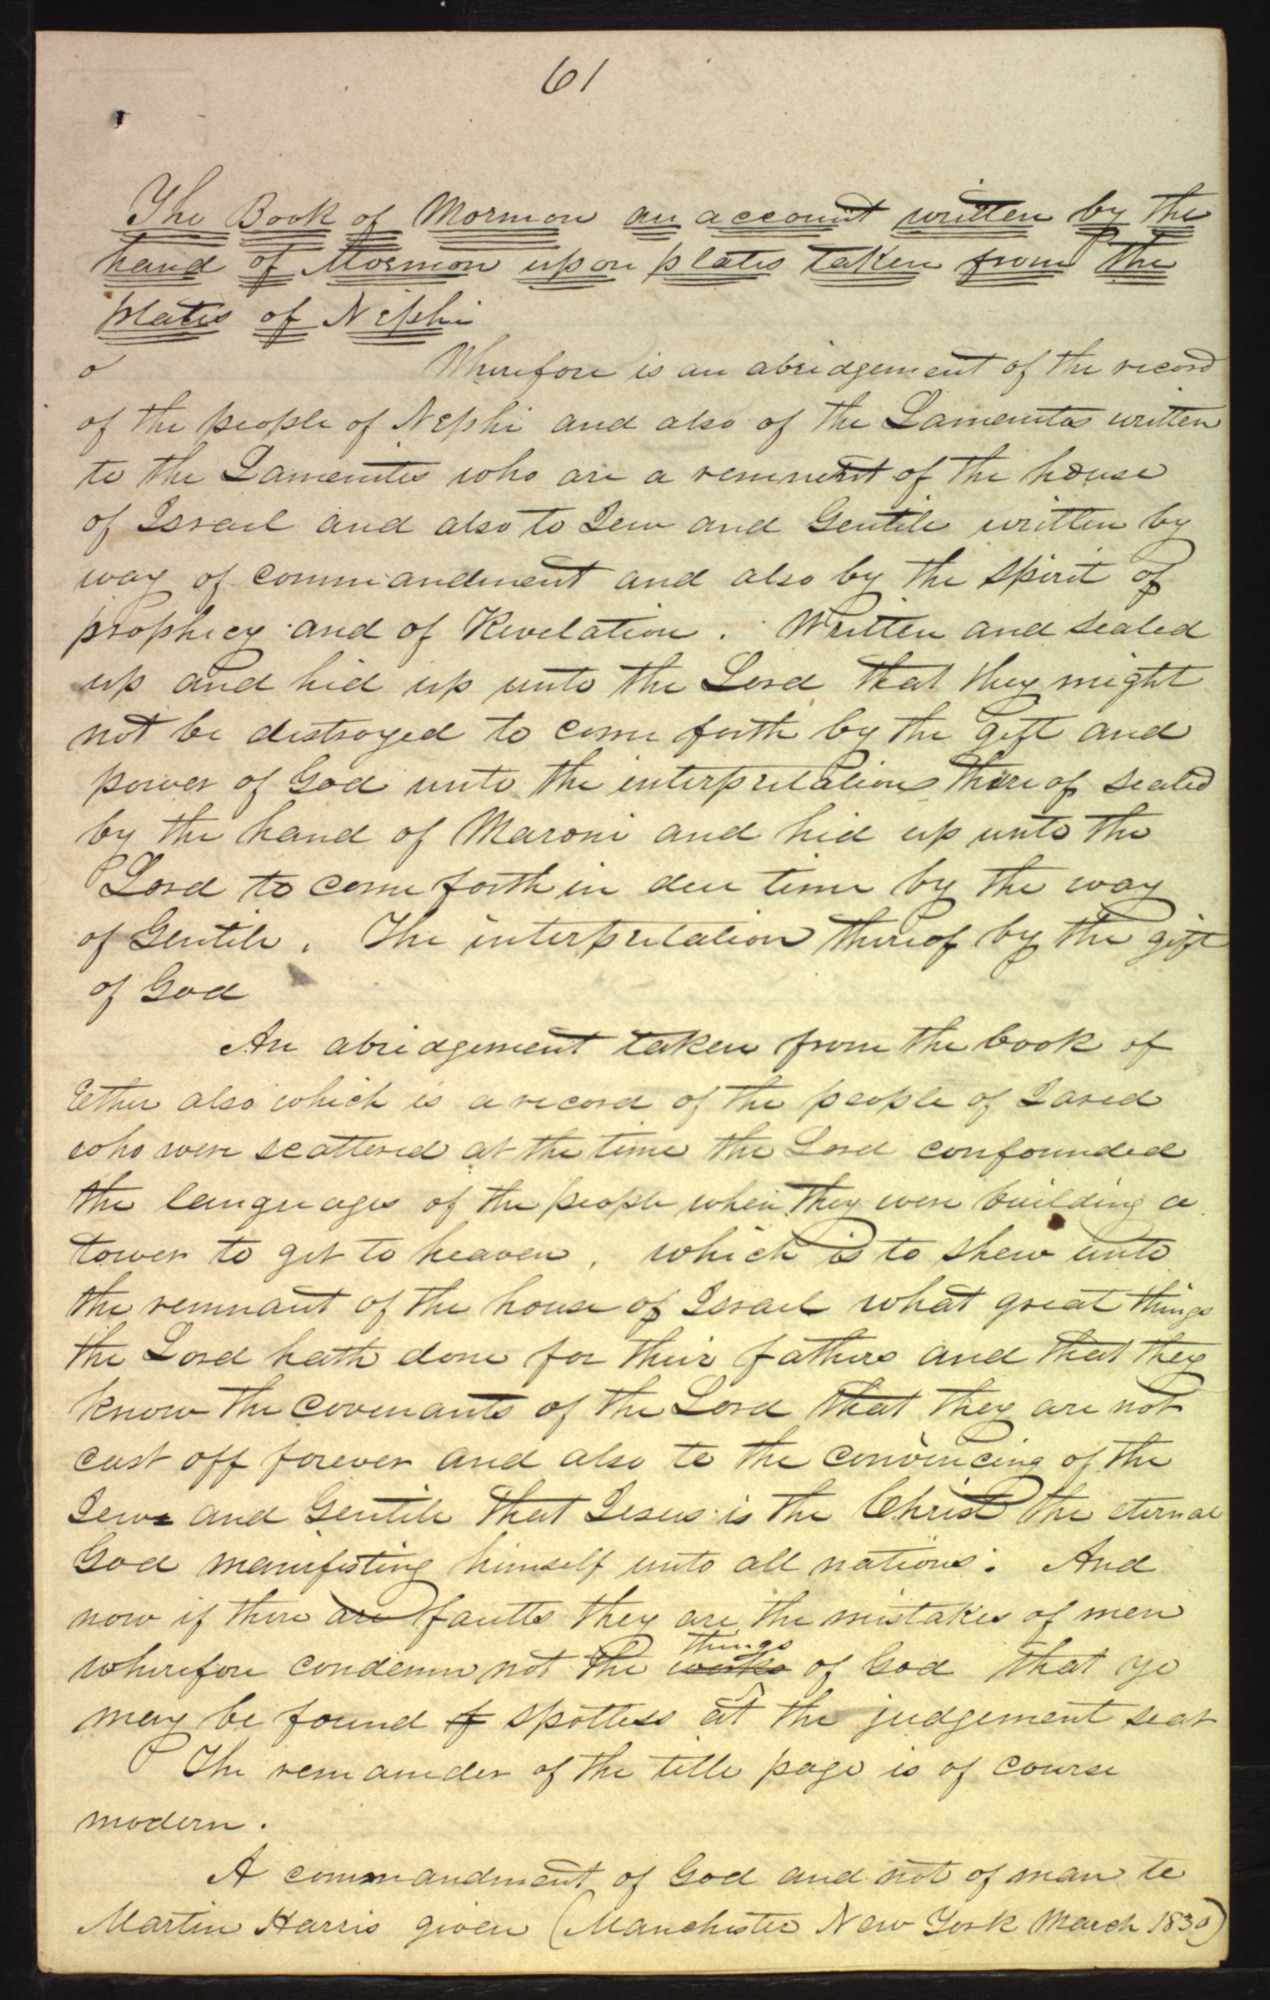 61
The Book of Mormon an account written by the
hand of Mormon upon plates taken from the
plates of Nephi
Wherefore is an abridgement of the record
of the people of Nephi and also of the Lamenites written
to the Lamenites who are a remnent of the house
of Israel and also to Jew and Gentile written by
way of commandment and also by the spirit of
prophecy and of Revelation. Written and sealed
up and hid up unto the Lord that they might
not be destroyed to come forth by the gift and
power of God unto the interpretation thereof sealed
by the hand of Maroni and hid up unto the
Lord to come forth in due time by the way
of Gentile. The interpretation thereof by the gift
of God
An abridgement taken from the book of
Ether also which is a record of the people of Jared
who were scattered at the time the Lord confounded
the languages of the people when they were building a
tower to get to heaven, which is to shew unto
the remnant of the house of Israel what great things
the Lord hath done for their fathers and that they
know the covenants of the Lord that they are not
cast off forever and also to the convincing of the
Jew and Gentile that Jesus is the Christ the eternal
God manifesting himself unto all nations. And
now if there are faults they are the mistakes of men
things
wherefore condemn not the works of God that ye
may be found f spotless at the judgement seat
The remainder of the title page is of course
modern.
A commandment of God and not of man to
Martin Harris given (Manchester New York March 1830)